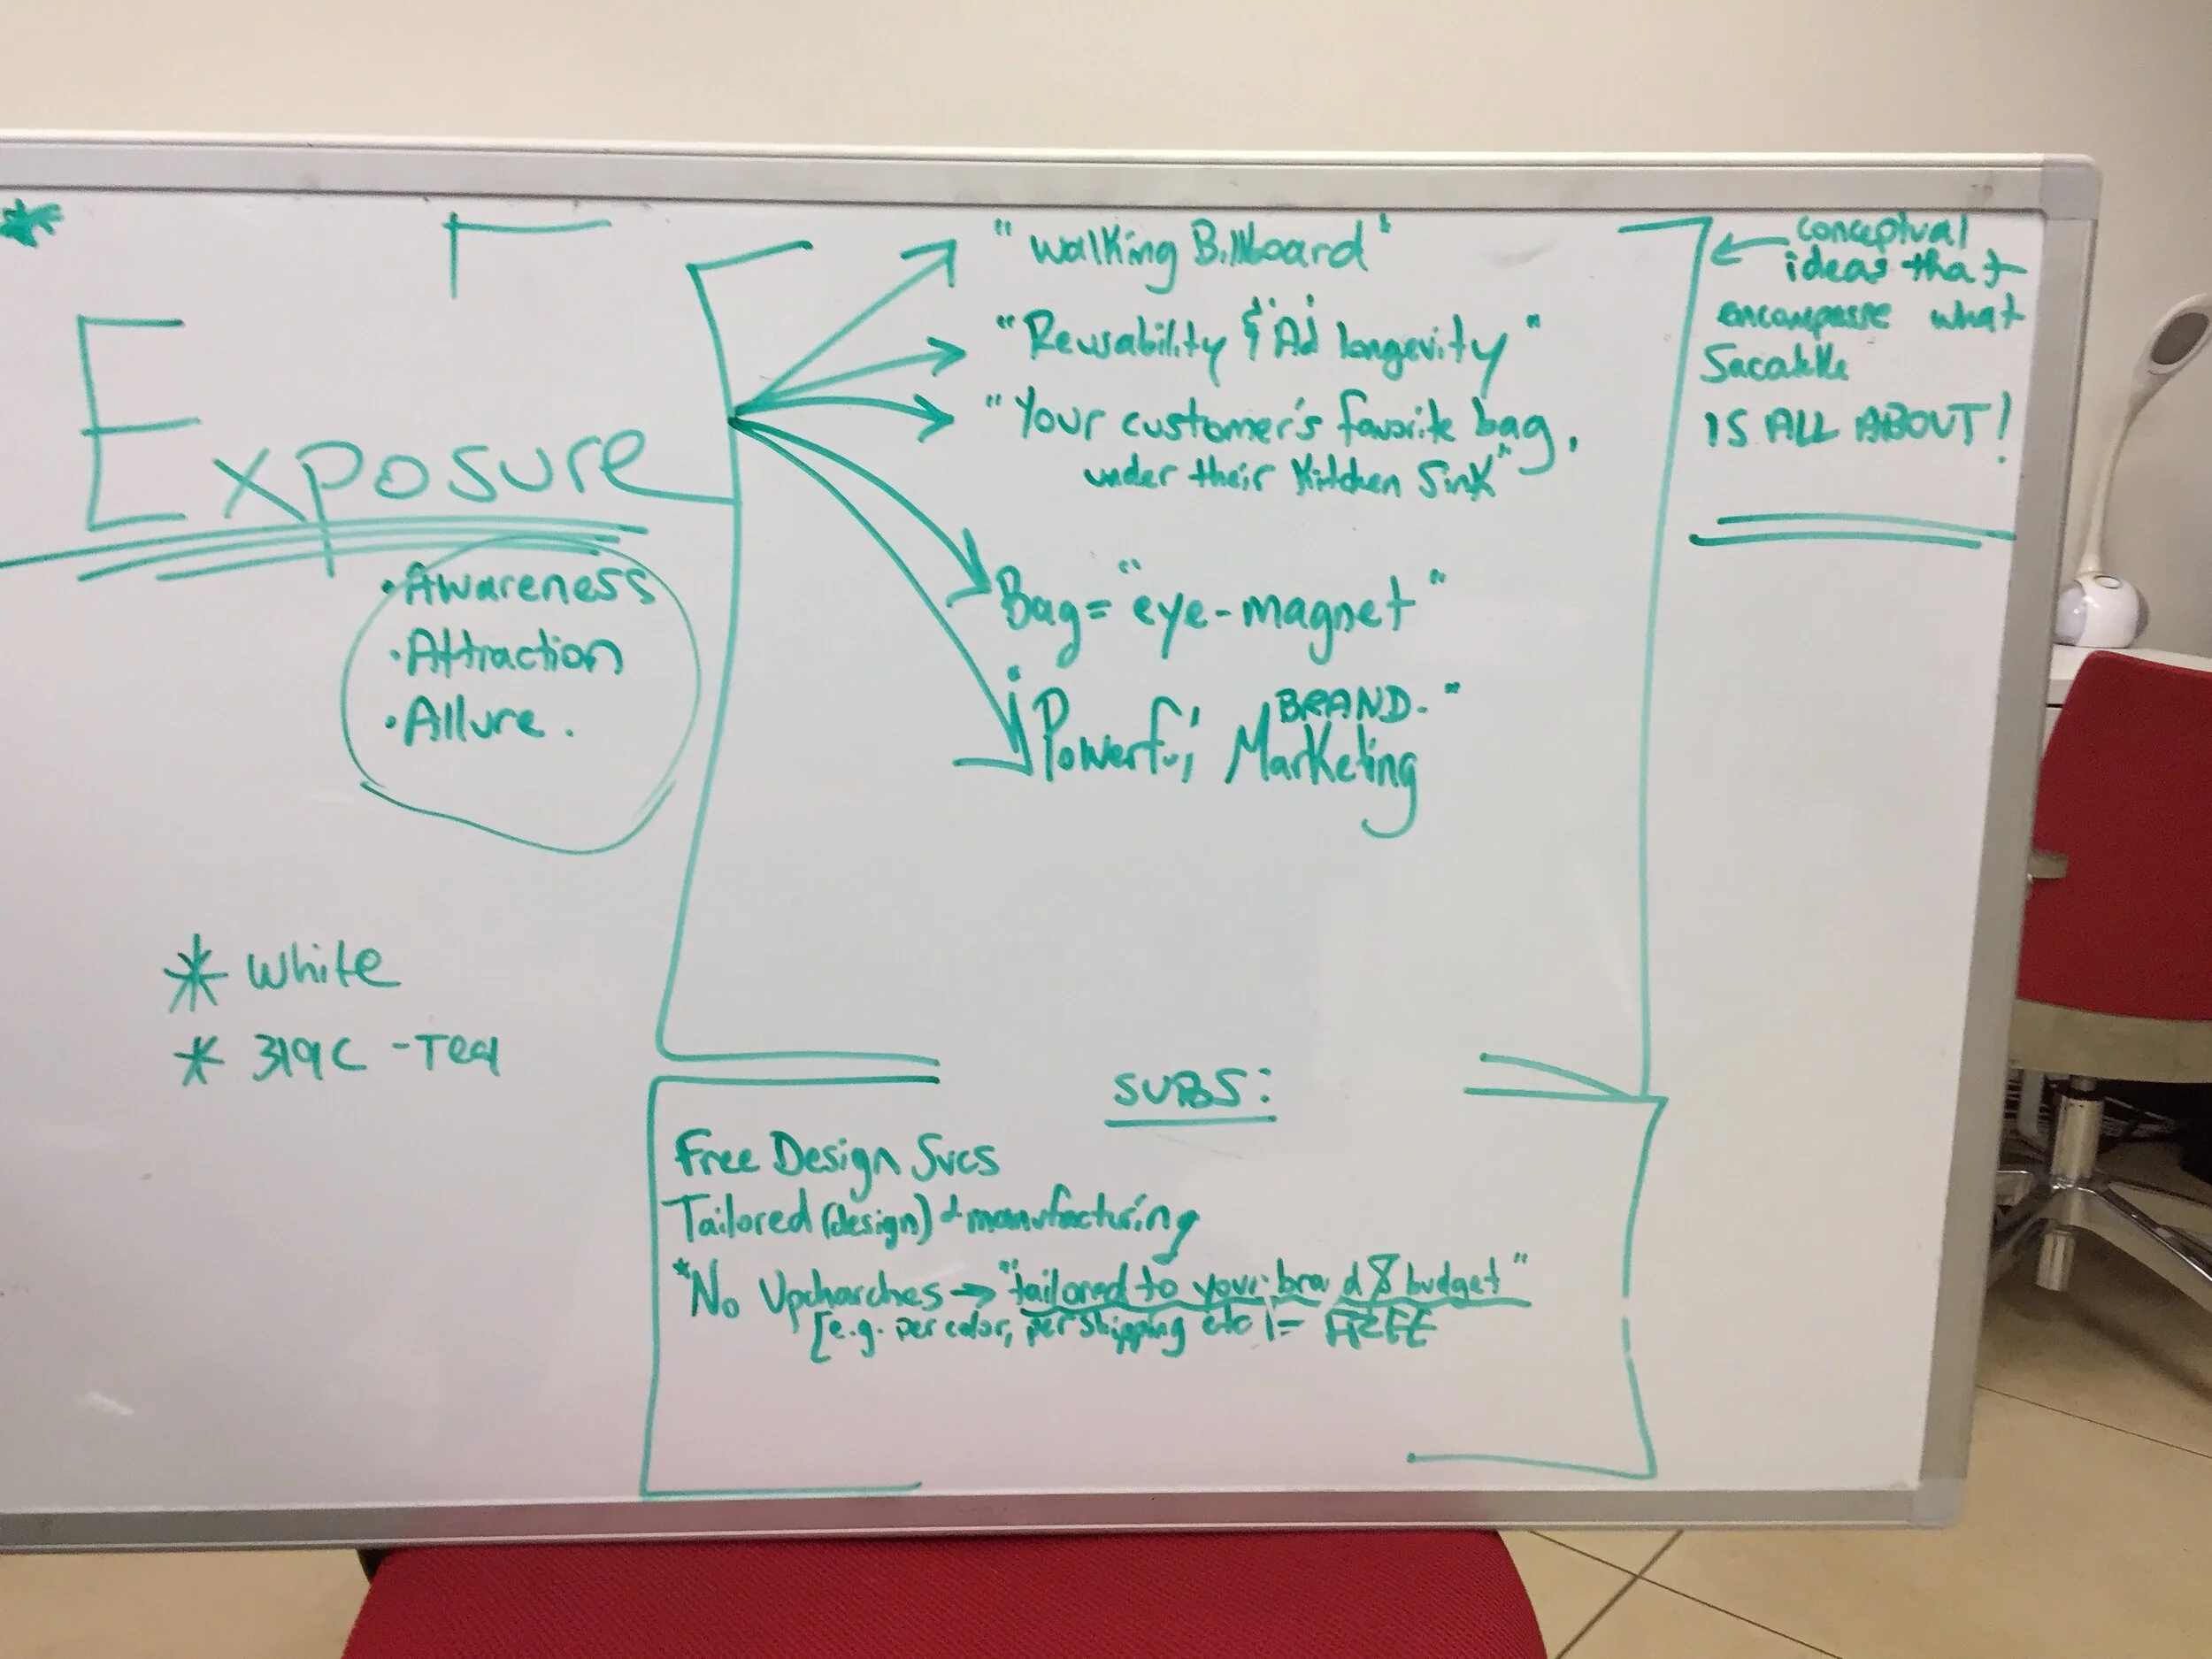 Exposure
• Awareness
• Attraction
• Allure.
* White
* 319C - Teal
"Walking Billboard"
"Reusability & Ad longevity"
"Your customer's favorite bag,
under their Kitchen Sink"
Bag = "eye-magnet"
BRAND."
"Powerful Marketing
conceptual
ideas that
encompasse what
IS ALL ABOUT!
SUBS:
Free Design Svcs
Tailored (design) & manufacturing
*No Upcharches → "tailored to your brand & budget"
[e.g. per color, per shipping etc] = FREE